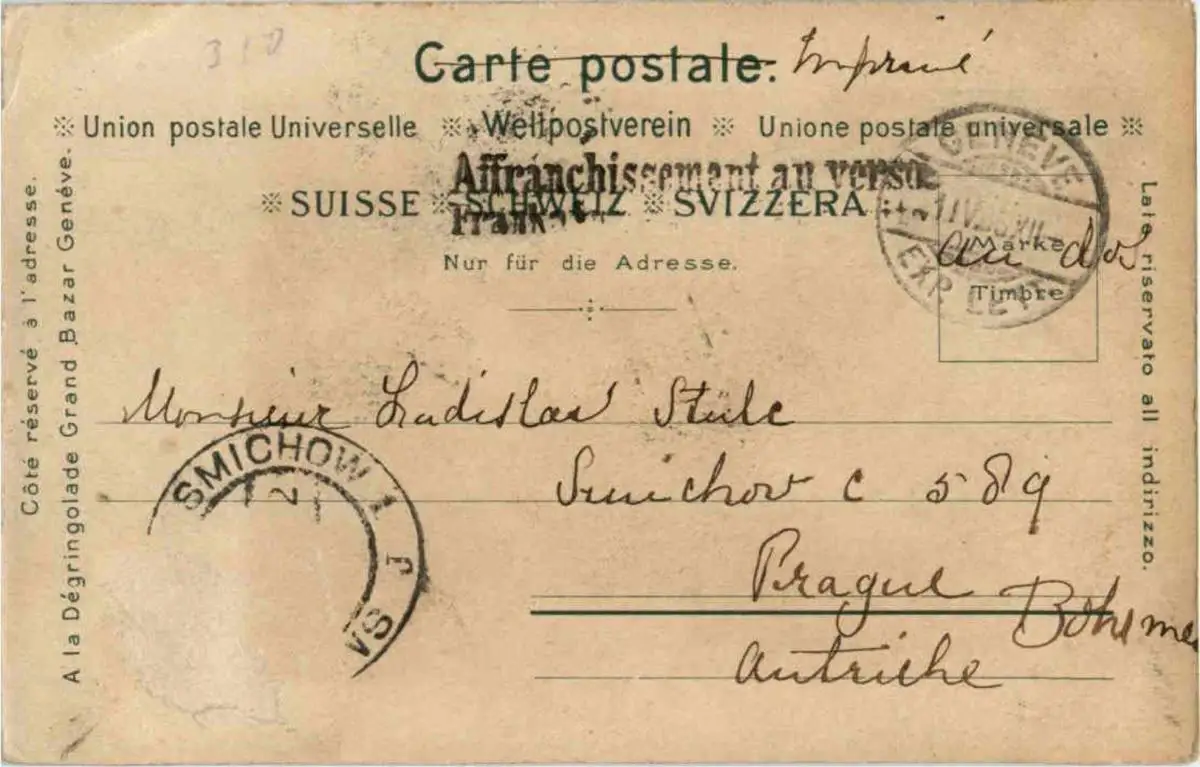 310
Carte postale. Imprimé
Union postale Universelle Weltpostverein Unione postale universale
Affranchissement au verso
SUISSE SCHWEIZ SVIZZERA
Nur für die Adresse.
GENÈVE
EXP. LETT
au dos
Marke
Timbre
Côté réservé à l'adresse.
A la Dégringolade Grand Bazar Genéve.
Lato riservato all indirizzo.
Monsieur Ladislas Stulc
SMICHOW 1
2
Smichov c 589
Prague Bohême
Autriche